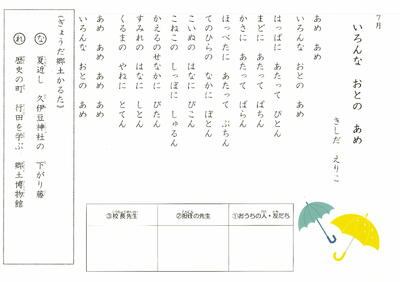 7月
いろんな おとの あめ
きしだ えりこ
あめ あめ
いろんな おとの あめ
はっぱに あたって ぴとん
まどに あたって ぱちん
かさに あたって ぱらん
ほっぺたに あたって ぷちん
てのひらの なかに ぽとん
こいぬの はなに ぴこん
こねこの しっぽに しゅるん
かえるのせなかに ぴたん
すみれの はなに しとん
くるまの やねに とてん
あめ あめ あめ あめ
いろんな おとの あめ
(ぎょうだ郷土かるた)
な 夏近し 久伊豆神社の 下がり藤
れ 歴史の町 行田を学ぶ 郷土博物館
①おうちの人・友だち
②担任の先生
③校長先生